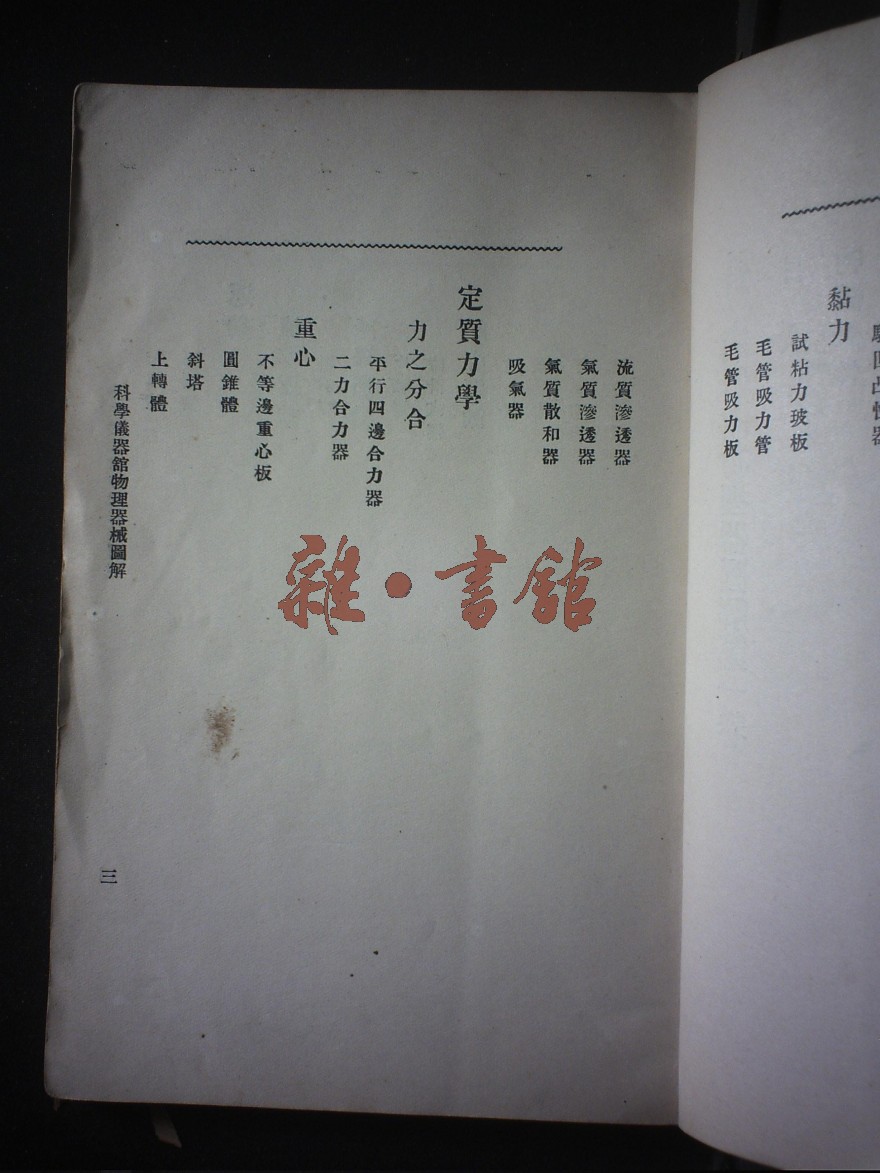 黏力
試粘力玻板
毛管吸力管
毛管吸力板
流質滲透器
氣質滲透器
氣質散和器
吸氣器
定質力學
力之分合
平行四邊合力器
二力合力器
重心
不等邊重心板
圓錐體
斜塔
上轉體
科學儀器館物理器械圖解
三
雜·書館